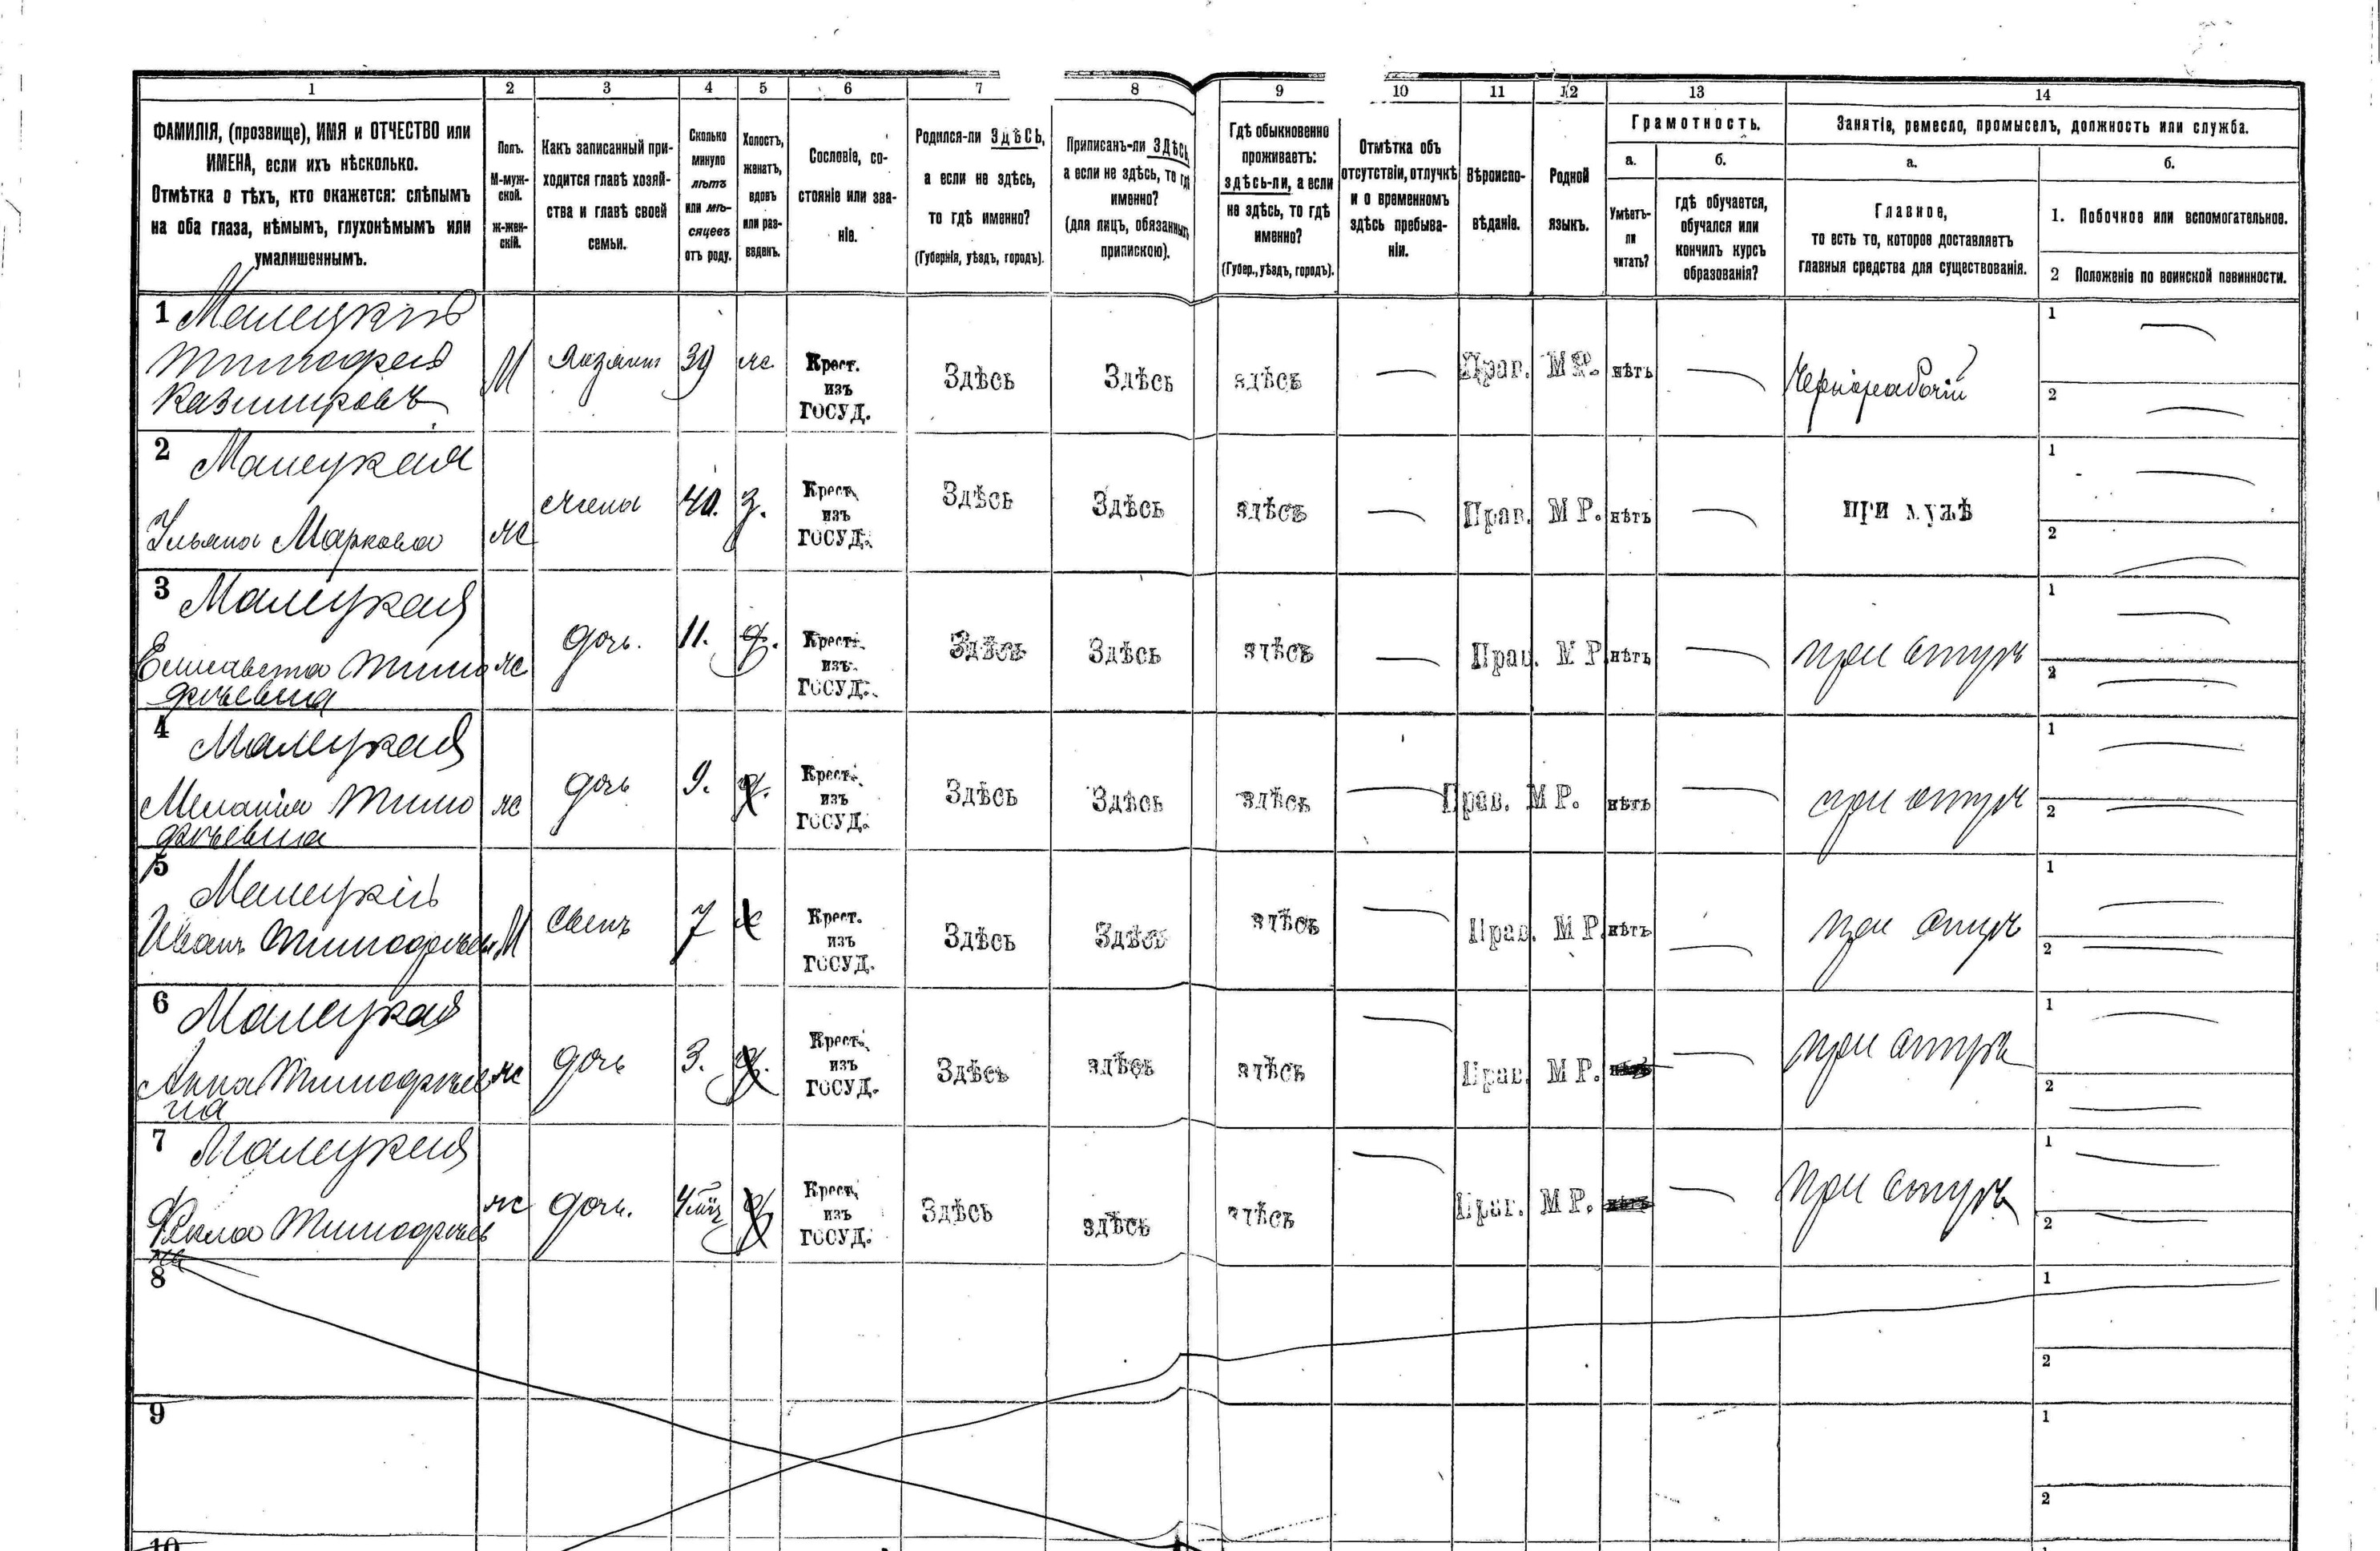 1 2 3 4 5 6 7 8 9 10 11 12 13 14
ФАМИЛІЯ, (прозвище), ИМЯ и ОТЧЕСТВО или
ИМЕНА, если ихъ нѣсколько.
Отмѣтка о тѣхъ, кто окажется: слѣпымъ
на оба глаза, нѣмымъ, глухонѣмымъ или
умалишеннымъ.
Полъ.
М-муж-
ской.
ж-жен-
скій.
Какъ записанный при-
ходится главѣ хозяй-
ства и главѣ своей
семьи.
Сколько
минуло
лѣтъ
или мѣ-
сяцевъ
отъ роду.
Холостъ,
женатъ,
вдовъ
или раз-
веденъ.
Сословіе, со-
стояніе или зва-
ніе.
Родился-ли ЗДѢСЬ,
а если не здѣсь,
то гдѣ именно?
(Губернія, уѣздъ, городъ).
Приписанъ-ли ЗДѢСЬ
а если не здѣсь, то гдѣ
именно?
(для лицъ, обязанныхъ
припискою).
Гдѣ обыкновенно
проживаетъ:
здѣсь-ли, а если
не здѣсь, то гдѣ
именно?
(Губер., уѣздъ, городъ).
Отмѣтка объ
отсутствіи, отлучкѣ
и о временномъ
здѣсь пребыва-
ніи.
Вѣроиспо-
вѣданіе.
Родной
языкъ.
Грамотность.
а.
Умѣетъ-
ли
читать?
б.
гдѣ обучается,
обучался или
кончилъ курсъ
образованія?
Занятіе, ремесло, промыселъ, должность или служба.
а.
Главное,
то есть то, которое доставляетъ
главныя средства для существованія.
б.
1. Побочное или вспомогательное.
2 Положеніе по воинской повинности.
1 Малецкій
Тимофей
Казимировъ
М
хозяинъ
39
ж
Крест.
изъ
ГОСУД.
Здѣсь
Здѣсь
здѣсь
—
Прав.
М Р.
нѣтъ
—
Чернорабочій
1 —
2 —
2 Малецкая
Ульяна Маркова
ж
жена
40.
з.
Крест.
изъ
ГОСУД.
Здѣсь
Здѣсь
здѣсь
—
Прав.
М Р.
нѣтъ
—
при мужѣ
1 —
2 —
3 Малецкая
Елисавета Тимо
фѣевна
ж
дочь.
11.
д.
Крест.
изъ
ГОСУД.
Здѣсь
Здѣсь
здѣсь
—
Прав.
М Р.
нѣтъ
—
при отцѣ
1 —
2 —
4 Малецкая
Меланія Тимо
фѣевна
ж
дочь
9.
Крест.
изъ
ГОСУД.
Здѣсь
Здѣсь
здѣсь
—
Прав.
М Р.
нѣтъ
—
при отцѣ
1 —
2 —
5 Малецкій
Иванъ Тимофѣевъ
М
сынъ
7
Крест.
изъ
ГОСУД.
Здѣсь
Здѣсь
здѣсь
—
Прав.
М Р.
нѣтъ
—
при отцѣ
1 —
2 —
6 Малецкая
Анна Тимофѣев
на
ж
дочь
3.
Крест.
изъ
ГОСУД.
Здѣсь
здѣсь
здѣсь
—
Прав.
М Р.
—
при отцѣ
1 —
2 —
7 Малецкая
Фекла Тимофѣев
на
ж
дочь.
Крест.
изъ
ГОСУД.
Здѣсь
здѣсь
здѣсь
—
Прав.
М Р.
—
при отцѣ
1 —
2 —
8
1
2
9
1
2
10